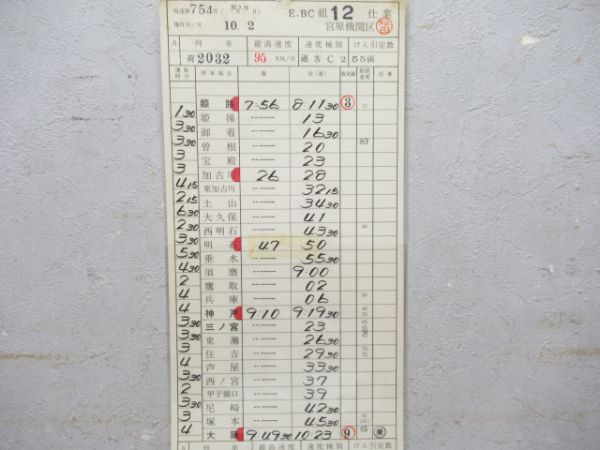 754
E.BC 組 12 仕業
10.2 宮原機関区
A 列車 最高速度 速度種別 けん引定数
荷2032 95 KM/H 通客C2 55両
運転時分 停車場名 着 発(通)
姫路 7:56 8:11 30 ③
1 30 姫操 ---- 13
3 30 御着 ---- 16 30
3 30 曽根 ---- 20 80
3 宝殿 ---- 23
3 加古川 26 28
4 15 東加古川 ---- 32 15
2 15 土山 ---- 34 30
6 30 大久保 ---- 41
2 30 西明石 ---- 43 30
3 30 明石 47 50
5 30 垂水 ---- 55 30
4 30 須磨 ---- 9:00
2 鷹取 ---- 02
4 兵庫 ---- 06
4 神戸 9:10 9:19 30
3 30 三ノ宮 ---- 23
3 30 東灘 ---- 26 30
3 住吉 ---- 29 30
4 芦屋 ---- 33 30
3 30 西ノ宮 ---- 37
2 甲子園口 ---- 39
3 30 尼崎 ---- 42 30
3 塚本 ---- 45 30
4 大阪 9:49 30 10:23 ⑨
A 列車 最高速度 速度種別 けん引定数